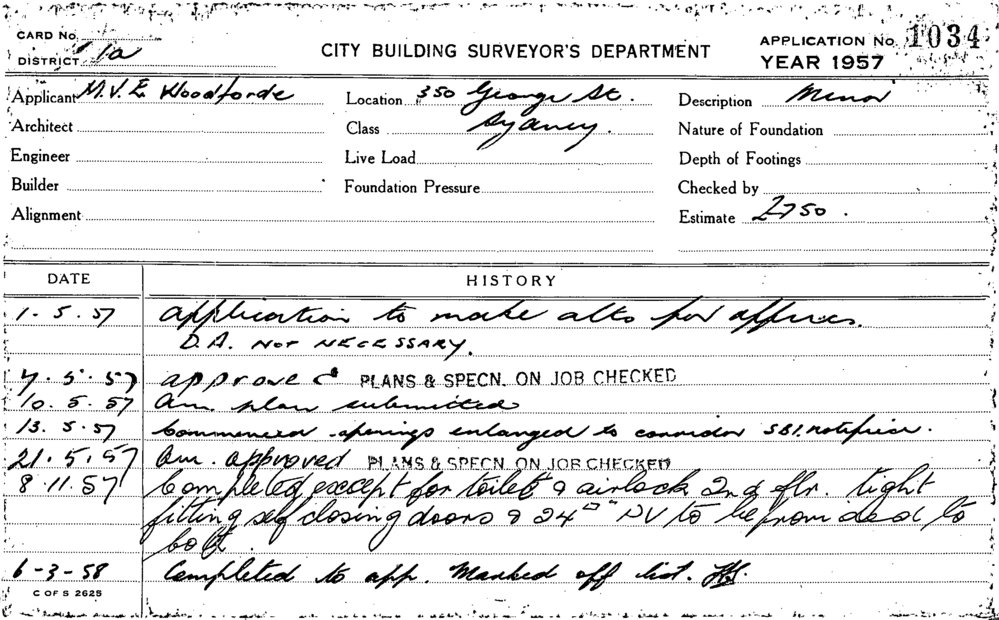 CARD No.
DISTRICT 1a
CITY BUILDING SURVEYOR'S DEPARTMENT
APPLICATION No. 1034
YEAR 1957
Applicant M.V.E. Woodforde
Location 350 George St.
Description Minor
Architect
Class Sydney.
Nature of Foundation
Engineer
Live Load
Depth of Footings
Builder
Foundation Pressure
Checked by
Alignment
Estimate 2750.
DATE
HISTORY
1.5.57 Application to make alts for offices.
D.A. NOT NECESSARY.
7.5.57 approved PLANS & SPECN. ON JOB CHECKED
10.5.57 Am. plan submitted
13.5.57 Commenced openings enlarged to corridor
21.5.57 Am. approved PLANS & SPECN. ON JOB CHECKED
8.11.57 Completed except for toilet & airlock 2nd flr. tight
fitting self closing doors & 24 to be provided to
both.
6-3-58 Completed to app. Marked off list.
C OF S 2625